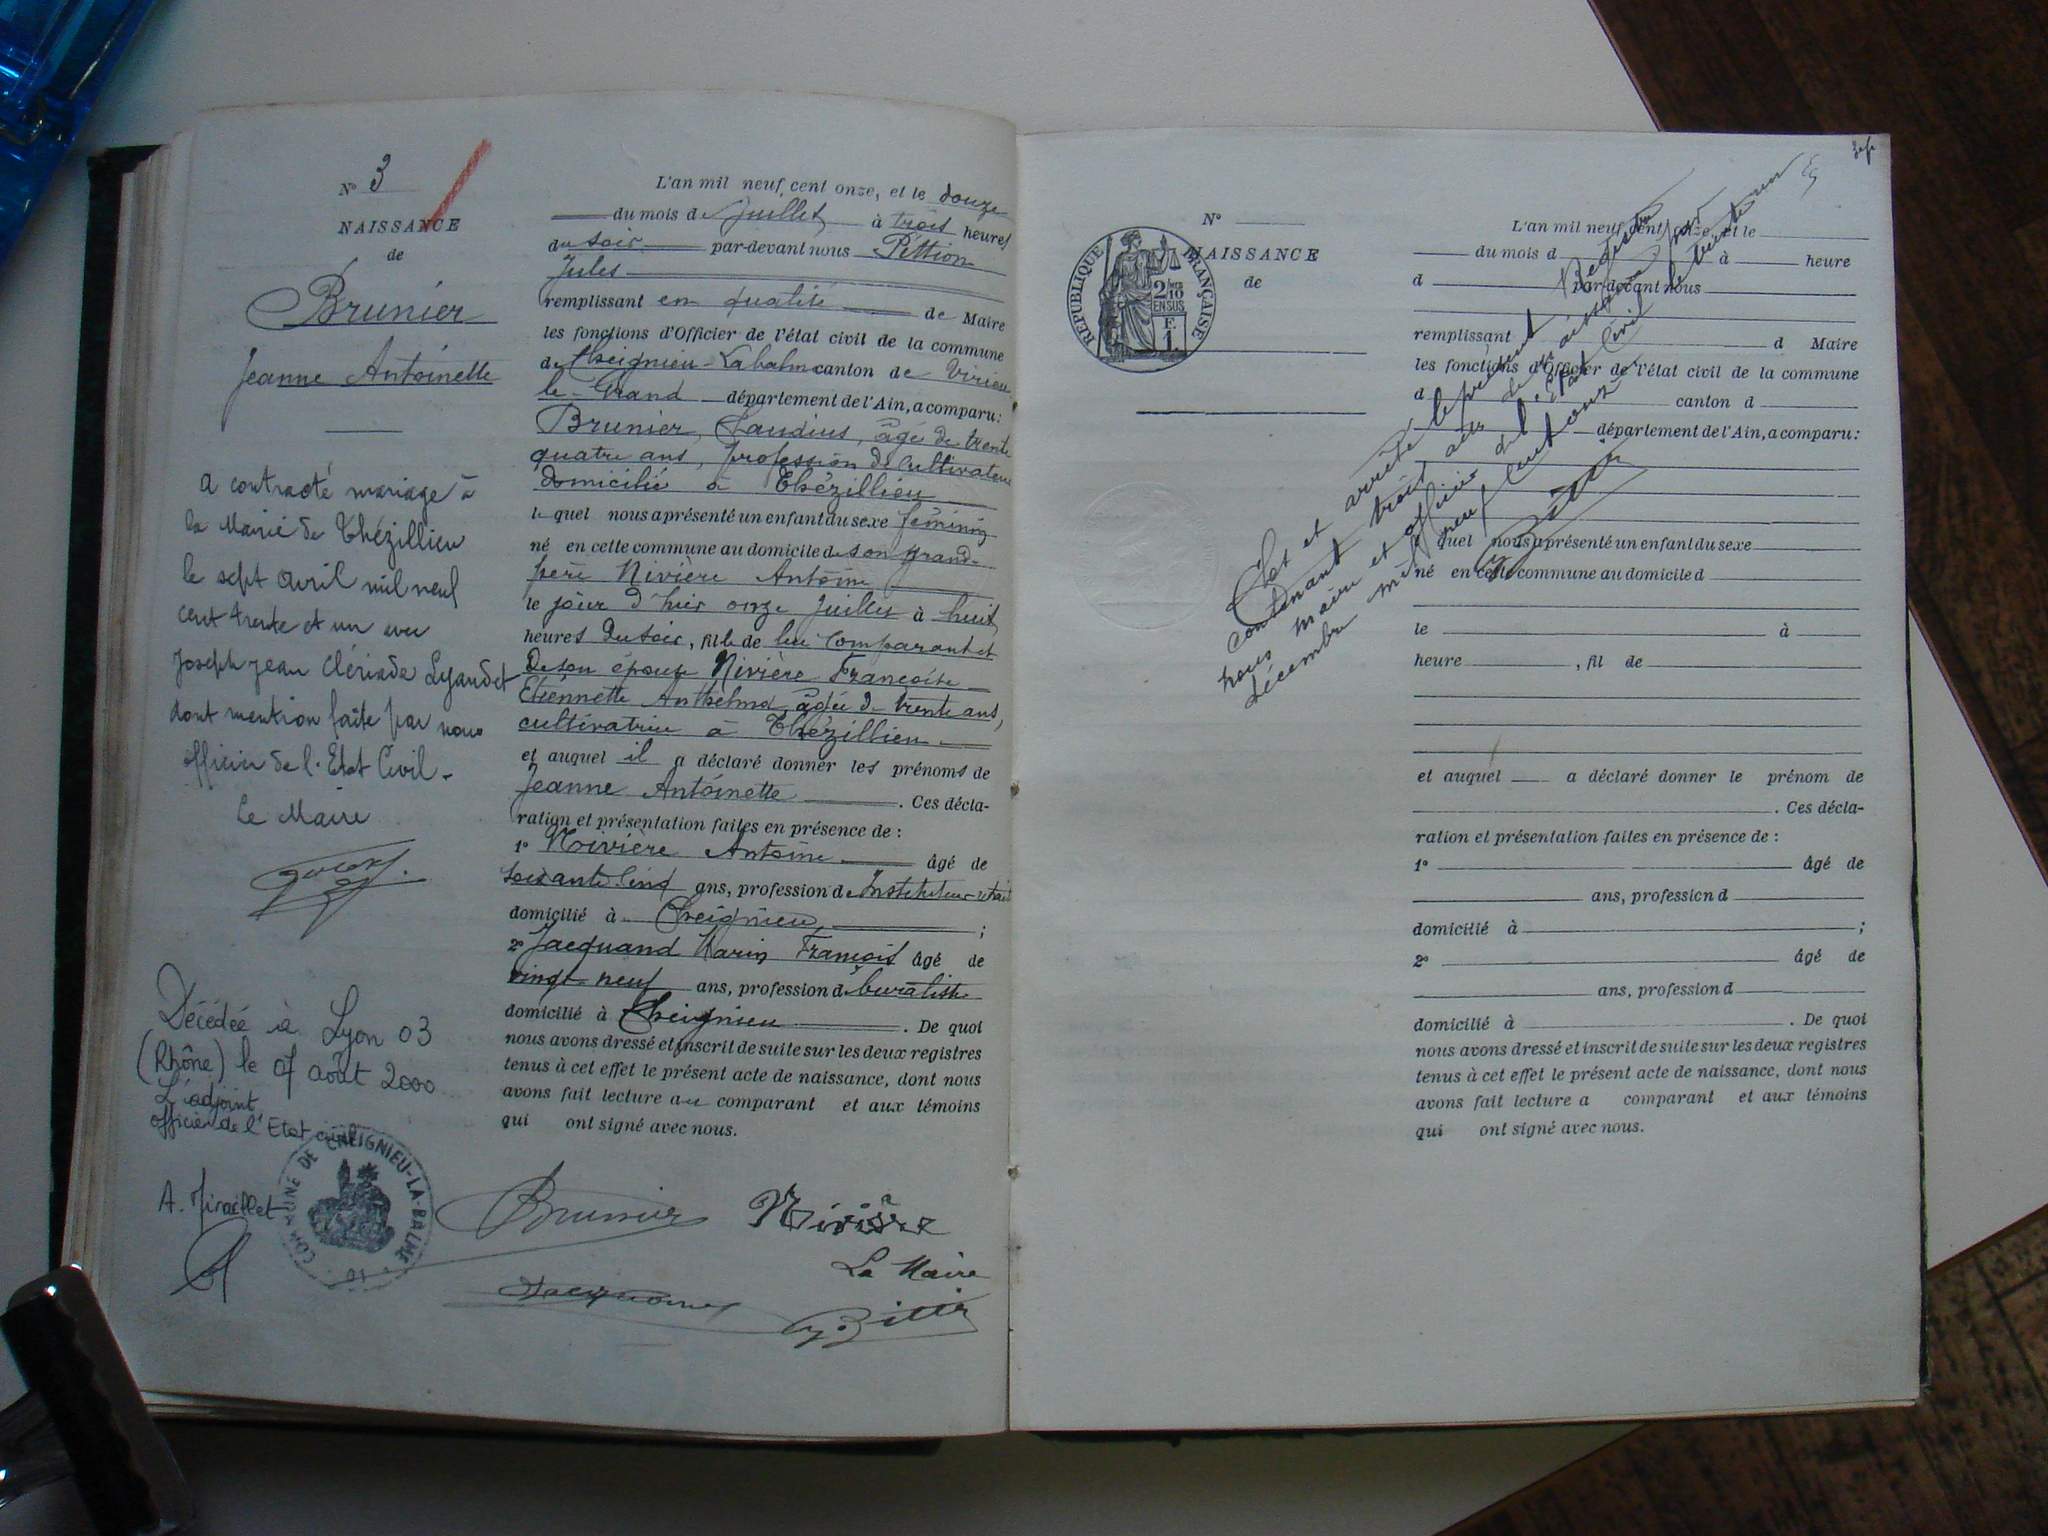 N° 3
NAISSANCE
de
Brunier
Jeanne Antoinette
a contracté mariage à
la Mairie de Thézillieu
le sept avril mil neuf
cent trente et un avec
Joseph Jean Clériade Lyaudet
dont mention faite par nous
officier de l'Etat Civil -
Le Maire
Décédée à Lyon 03
(Rhône) le 07 août 2000
L'adjoint
officier de l'Etat civil
COMMUNE DE CHEIGNIEU-LA-BALME 01
L'an mil neuf cent onze, et le douze
du mois de Juillet à trois heures
du soir par-devant nous
Jules
remplissant en qualité de Maire
les fonctions d'Officier de l'état civil de la commune
de Cheignieu-Labalme canton de Virieu
le-Grand département de l'Ain, a comparu:
Brunier, Claudius, âgé de trente
quatre ans, profession de cultivateur
domicilié à Thézillieu
lequel nous a présenté un enfant du sexe féminin
né en cette commune au domicile de son grand-
père Nivière Antoine
le jour d'hier onze Juillet à huit
heures du soir, fille de lui comparant et
de son épouse Nivière Françoise
Etiennette Anthelma, âgée de trente ans,
cultivatrice à Thézillieu
et auquel il a déclaré donner les prénoms de
Jeanne Antoinette . Ces décla-
ration et présentation faites en présence de :
1° Nivière Antoine âgé de
soixante cinq ans, profession d'Instituteur retraité
domicilié à Cheignieu, ;
2° Jacquand Marin François âgé de
vingt-neuf ans, profession de buraliste
domicilié à Cheignieu . De quoi
nous avons dressé et inscrit de suite sur les deux registres
tenus à cet effet le présent acte de naissance, dont nous
avons fait lecture au comparant et aux témoins
qui ont signé avec nous.
Brunier Nivière
Le Maire
Jacquand
N°
NAISSANCE
de
RÉPUBLIQUE FRANÇAISE
2/10
EN SUS
F.
1
Clos et arrêté le présent Registre
contenant trois actes de naissance par
nous maire et officier de l'Etat Civil le trente un
décembre mil neuf cent onze
L'an mil neuf cent onze, et le
du mois d à heure
d par-devant nous
remplissant d Maire
les fonctions d'Officier de l'état civil de la commune
d canton d
département de l'Ain, a comparu:
quel nous a présenté un enfant du sexe
né en cette commune au domicile d
le à
heure , fil de
et auquel a déclaré donner le prénom de
. Ces décla-
ration et présentation faites en présence de :
1° âgé de
ans, profession d
domicilié à ;
2° âgé de
ans, profession d
domicilié à . De quoi
nous avons dressé et inscrit de suite sur les deux registres
tenus à cet effet le présent acte de naissance, dont nous
avons fait lecture a comparant et aux témoins
qui ont signé avec nous.